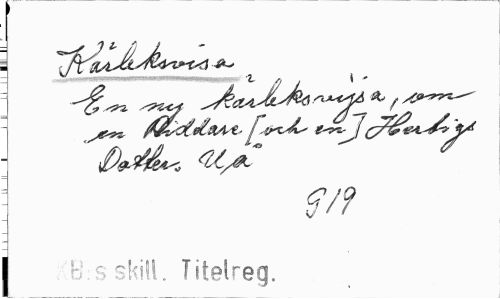 Kärleksvisa
En ny kärleksvijsa, om
en Riddare [och en] Hertigs
Dotter. U å
G 19
KB:s skill. Titelreg.